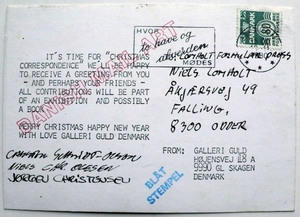 IT'S TIME FOR "CHRISTMAS
CORRESPONDENCE" WE'LL BE HAPPY
TO RECEIVE A GREETING FROM YOU
- AND PERHAPS YOUR FRIENDS -
ALL CONTRIBUTIONS WILL BE PART
OF AN EXHIBITION AND POSSIBLY
A BOOK
MERRY CHRISTMAS HAPPY NEW YEAR
WITH LOVE GALLERI GULD DENMARK
NIELS
JØRGEN CHRISTENSEN
HVOR
to hav og
MØDES
DANMARK
NIELS LOMHOLT
49
FALLING,
8300 ODDER
FROM:
GALLERI GULD
HØJENSVEJ 18 A
9990 GL SKAGEN
DENMARK
BLÅT
STEMPEL